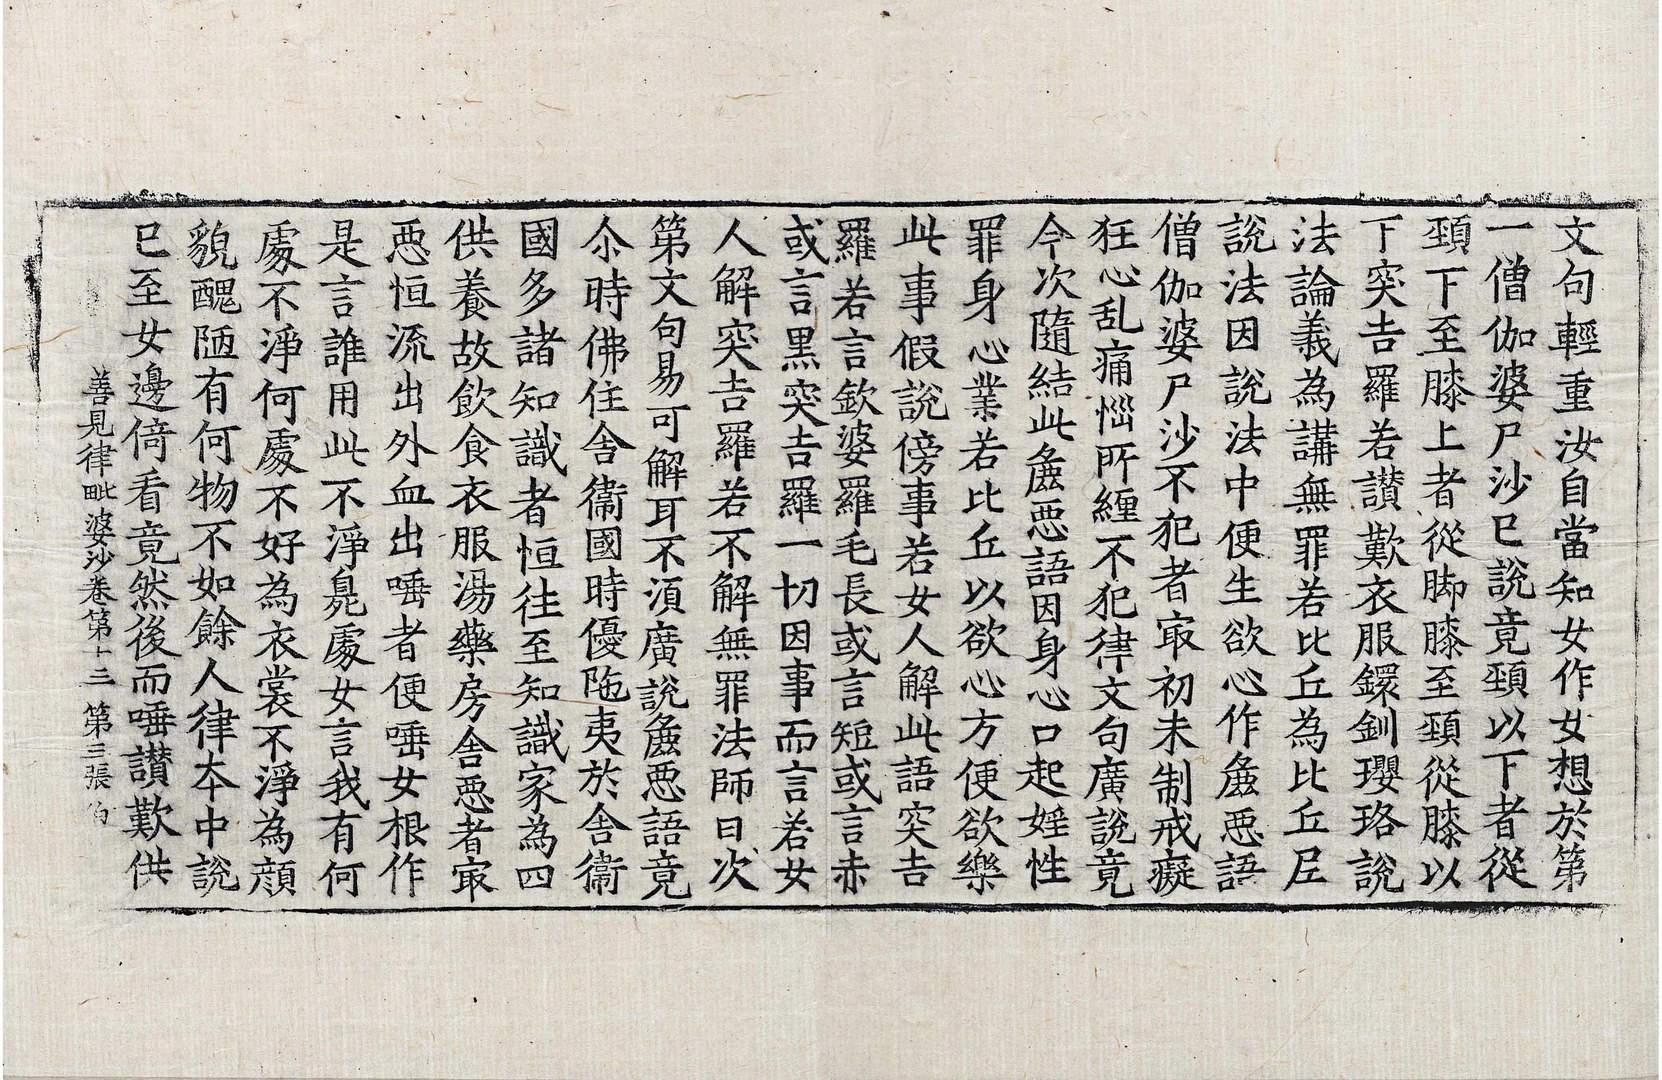 文句輕重汝自當知女作女想於第
一僧伽婆尸沙已說竟頸以下者從
頸下至膝上者從脚膝至頸從膝以
下突吉羅若讚歎衣服鐶釧瓔珞說
法論義為講無罪若比丘為比丘尼
說法因說法中便生欲心作麁惡語
僧伽婆尸沙不犯者㝡初未制戒癡
狂心乱痛惱所纏不犯律文句廣說竟
今次隨結此麁惡語因身心口起婬性
罪身心業若比丘以欲心方便欲樂
此事假說傍事若女人解此語突吉
羅若言欽婆羅毛長或言短或言赤
或言黑突吉羅一切因事而言若女
人解突吉羅若不解無罪法師曰次
第文句易可解耳不湏廣說麁惡語竟
尒時佛住舍衛國時優陁夷於舍衛
國多諸知識者恒往至知識家為四
供養故飲食衣服湯藥房舍惡者㝡
惡恒流出外血出唾者便唾女根作
是言誰用此不淨臰處女言我有何
處不淨何處不好為衣裳不淨為顔
貌醜陋有何物不如餘人律夲中說
已至女邊倚看竟然後而唾讃歎供
善見律毗婆沙卷第十三 第三張